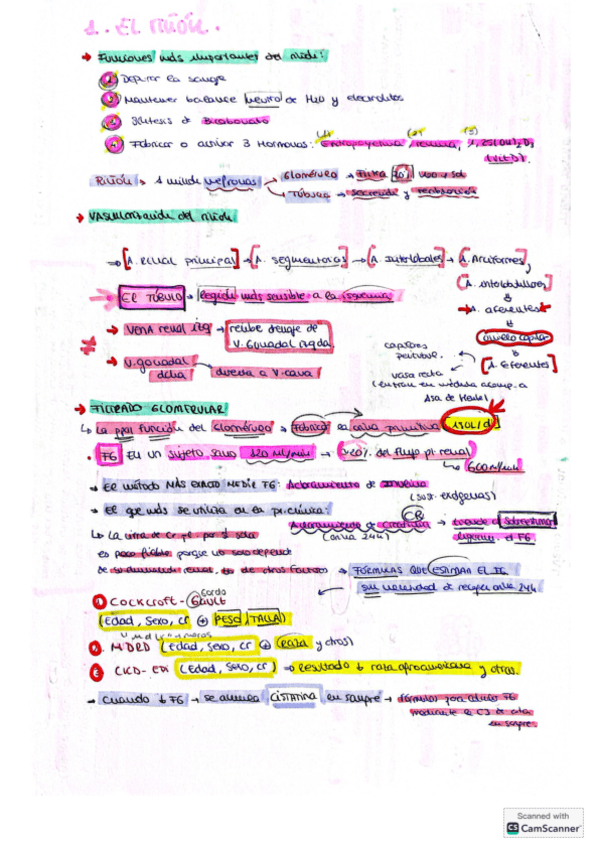 1. EL RIÑÓN.
→ Funciones más importantes del riñón:
1 Depurar la sangre
2 Mantener balance neutro de H2O y electrolitos
3 Síntesis de Bicarbonato
4 Fabricar o activar 3 Hormonas: Eritropoyetina, renina, 1,25(OH)2D3
(1) (2) (3)
(Vit D).
RIÑÓN → 1 millón de nefronas → Glomérulo → Filtra 20%
→ Túbulo → secreción y reabsorción
→ VASCULARIZACIÓN del riñón
⇒ [A. renal principal] → [A. segmentarias] → [A. Interlobales] → [A. Arciformes]
[A. interlobulillares]
EL TÚBULO → región más sensible a la isquemia
A. aferentes
→ VENA renal izq → recibe drenaje de
V. Gonadal izqda.
ovillo capilar
capilares
peritubul.
[A. Eferentes]
→ V. gonadal
dcha
directa a V. cava
vasa recta
(entran en médula acomp. a
Asa de Henle)
→ FILTRADO GLOMERULAR
↳ La ppal función del Glomérulo → Fabricar la orina primitiva 180L/d
• FG En un sujeto sano 120 ml/min → 20% del flujo pl. renal
↳ 600 ml/min
→ El método MÁS EXACTO MEDIR FG: Aclaramiento de Inulina
(sust. exógenas)
→ El que más se utiliza en la pr. clínica:
CR
Aclaramiento de Creatinina → tiende a sobreestimar
(orina 24h)
ligeram. el FG
↳ La cifra de Cr pl por sí sola
es poco fiable porque no solo depende
de su eliminación renal, de otros factores → FÓRMULAS QUE ESTIMAN EL FG
sin necesidad de recoger orina 24h
1 COCKCROFT-Gault
(Edad, sexo, cr ⊕ PESO, TALLA)
2 MDRD (Edad, sexo, cr ⊕ raza y otros)
3 CKD-EPI (Edad, sexo, cr) ⇒ Resultado raza afroamericana y otras.
→ Cuando ↓ FG → se aumenta CISTATINA en sangre → fórmulas para calcular FG
mediante la de esta
en sangre.
Scanned with
CS CamScanner